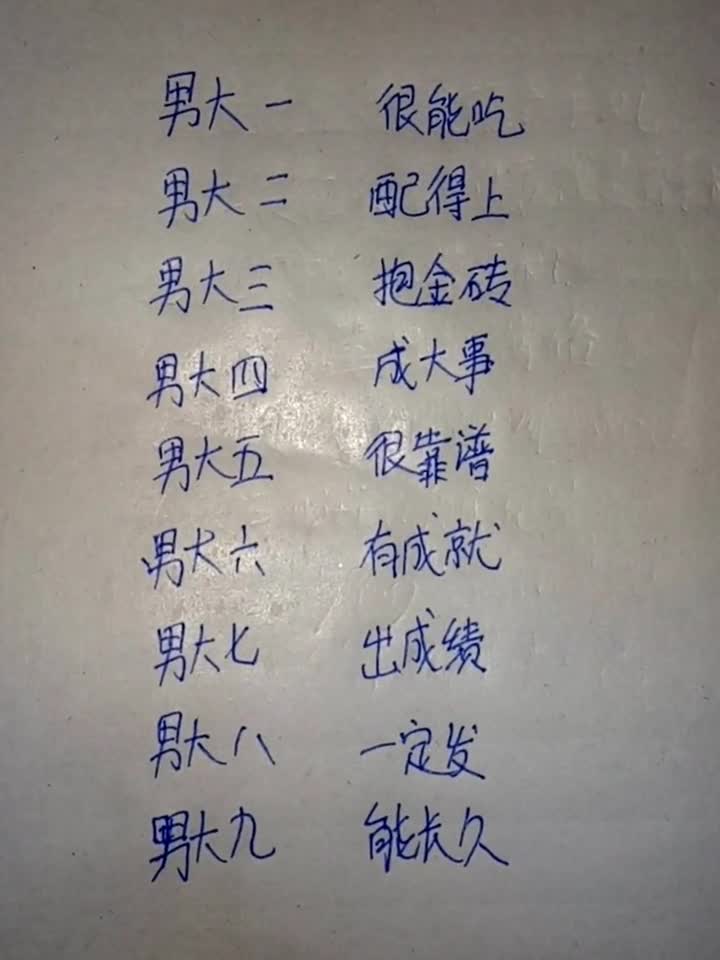 男大一 很能吃
男大二 配得上
男大三 抱金砖
男大四 成大事
男大五 很靠谱
男大六 有成就
男大七 出成绩
男大八 一定发
男大九 能长久